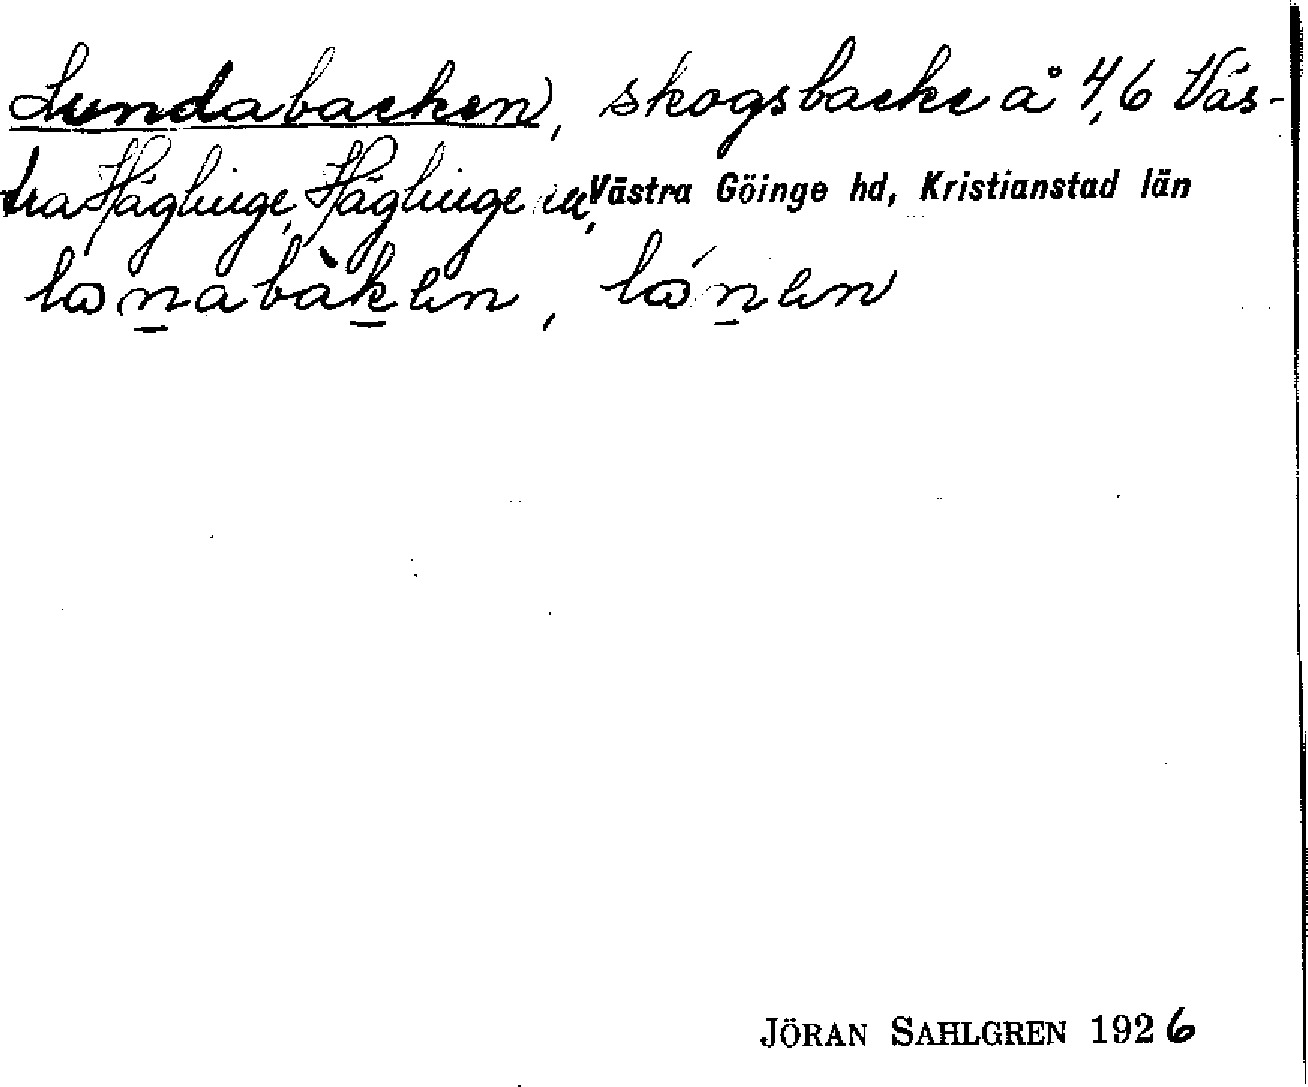 Lundabacken, skogsbacke å 4,6 Väs-
tra Häglinge, Häglinge sn, Västra Göinge hd, Kristianstad län
JÖRAN SAHLGREN 1926